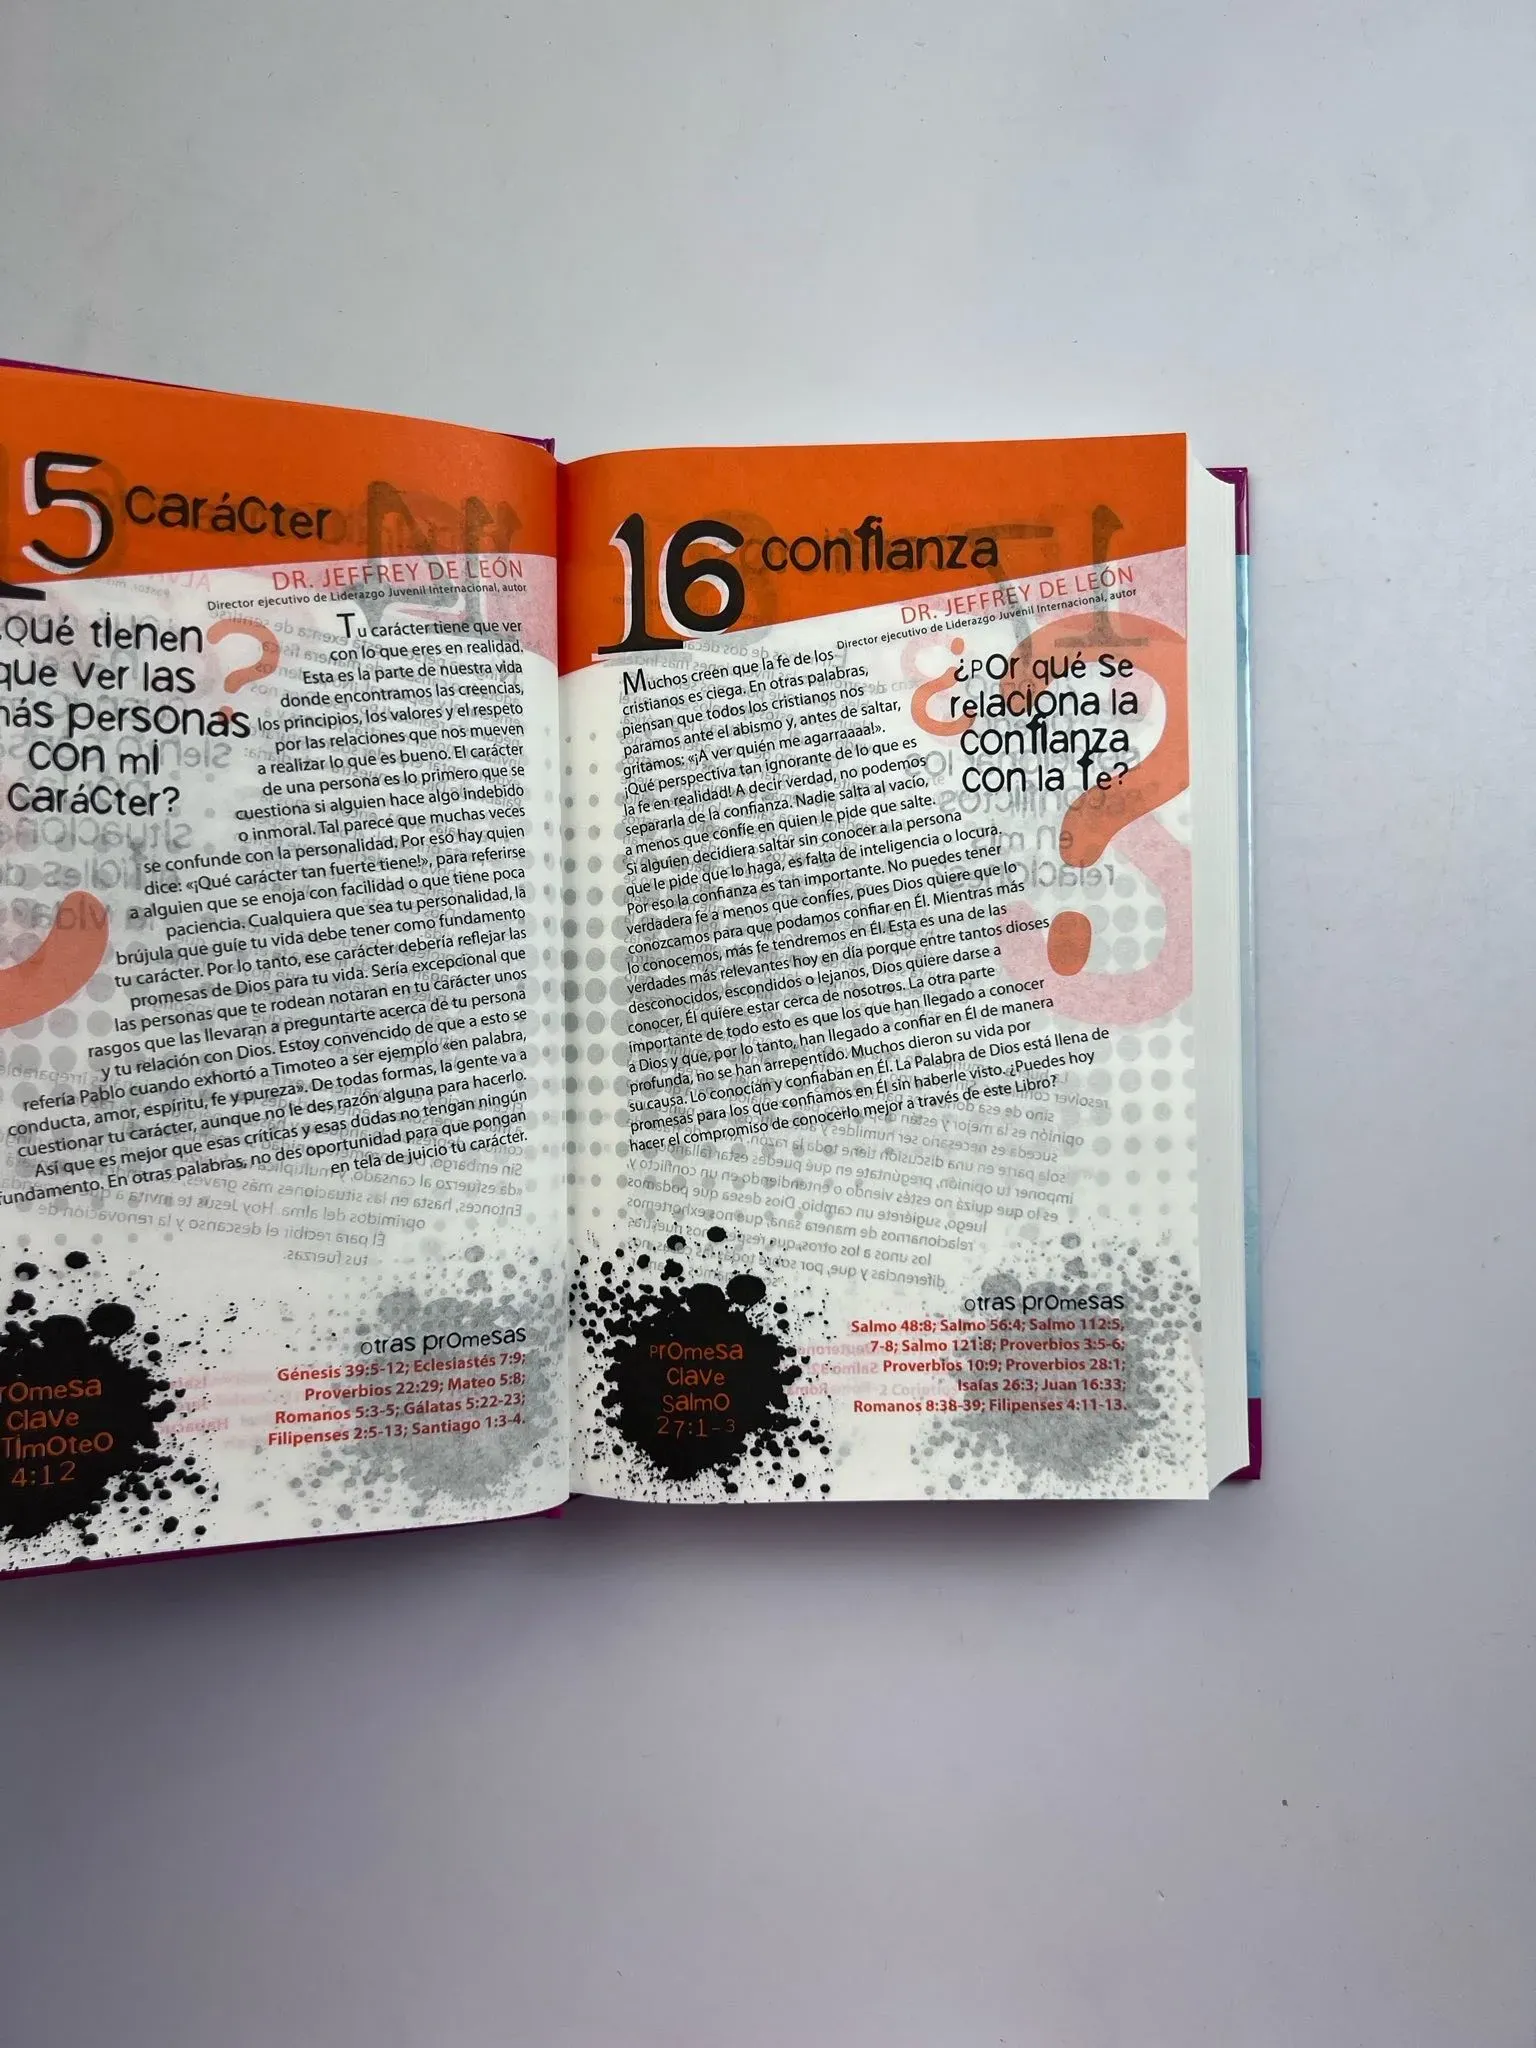 15 carácter
DR. JEFFREY DE LEÓN
Director ejecutivo de Liderazgo Juvenil Internacional, autor
¿Qué tienen
que ver las
más personas
con mi
carácter?
Tu carácter tiene que ver
con lo que eres en realidad.
Esta es la parte de nuestra vida
donde encontramos las creencias,
los principios, los valores y el respeto
por las relaciones que nos mueven
a realizar lo que es bueno. El carácter
de una persona es lo primero que se
cuestiona si alguien hace algo indebido
o inmoral. Tal parece que muchas veces
se confunde con la personalidad. Por eso hay quien
dice: «¡Qué carácter tan fuerte tiene!», para referirse
a alguien que se enoja con facilidad o que tiene poca
paciencia. Cualquiera que sea tu personalidad, la
brújula que guíe tu vida debe tener como fundamento
tu carácter. Por lo tanto, ese carácter debería reflejar las
promesas de Dios para tu vida. Sería excepcional que
las personas que te rodean notaran en tu carácter unos
rasgos que las llevaran a preguntarte acerca de tu persona
y tu relación con Dios. Estoy convencido de que a esto se
refería Pablo cuando exhortó a Timoteo a ser ejemplo «en palabra,
conducta, amor, espíritu, fe y pureza». De todas formas, la gente va a
cuestionar tu carácter, aunque no le des razón alguna para hacerlo.
Así que es mejor que esas críticas y esas dudas no tengan ningún
fundamento. En otras palabras, no des oportunidad para que pongan
en tela de juicio tu carácter.
promesa
clave
Timoteo
4:12
otras promesas
Génesis 39:5-12; Eclesiastés 7:9;
Proverbios 22:29; Mateo 5:8;
Romanos 5:3-5; Gálatas 5:22-23;
Filipenses 2:5-13; Santiago 1:3-4.
16 confianza
DR. JEFFREY DE LEÓN
Director ejecutivo de Liderazgo Juvenil Internacional, autor
¿Por qué se
relaciona la
confianza
con la fe?
Muchos creen que la fe de los
cristianos es ciega. En otras palabras,
piensan que todos los cristianos nos
paramos ante el abismo y, antes de saltar,
gritamos: «¡A ver quién me agarraaaal».
¡Qué perspectiva tan ignorante de lo que es
la fe en realidad! A decir verdad, no podemos
separarla de la confianza. Nadie salta al vacío,
a menos que confíe en quien le pide que salte.
Si alguien decidiera saltar sin conocer a la persona
que le pide que lo haga, es falta de inteligencia o locura.
Por eso la confianza es tan importante. No puedes tener
verdadera fe a menos que confíes, pues Dios quiere que lo
conozcamos para que podamos confiar en Él. Mientras más
lo conocemos, más fe tendremos en Él. Esta es una de las
verdades más relevantes hoy en día porque entre tantos dioses
desconocidos, escondidos o lejanos, Dios quiere darse a
conocer, Él quiere estar cerca de nosotros. La otra parte
importante de todo esto es que los que han llegado a conocer
a Dios y que, por lo tanto, han llegado a confiar en Él de manera
profunda, no se han arrepentido. Muchos dieron su vida por
su causa. Lo conocían y confiaban en Él. La Palabra de Dios está llena de
promesas para los que confiamos en Él sin haberle visto. ¿Puedes hoy
hacer el compromiso de conocerlo mejor a través de este Libro?
promesa
clave
Salmo
27:1-3
otras promesas
Salmo 48:8; Salmo 56:4; Salmo 112:5,
7-8; Salmo 121:8; Proverbios 3:5-6;
Proverbios 10:9; Proverbios 28:1;
Isaías 26:3; Juan 16:33;
Romanos 8:38-39; Filipenses 4:11-13.